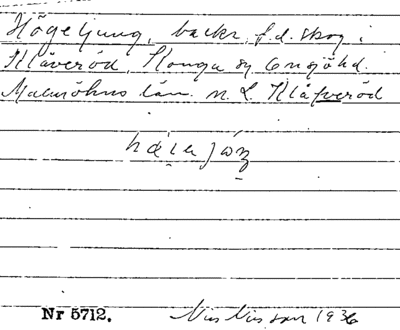 Högeljung, backe, f.d. skog i
Klåveröd, Konga sn Onsjö hd.
Malmöhus län. n. L. Klåveröd
Nr 5712. Nils Nilsson 1936